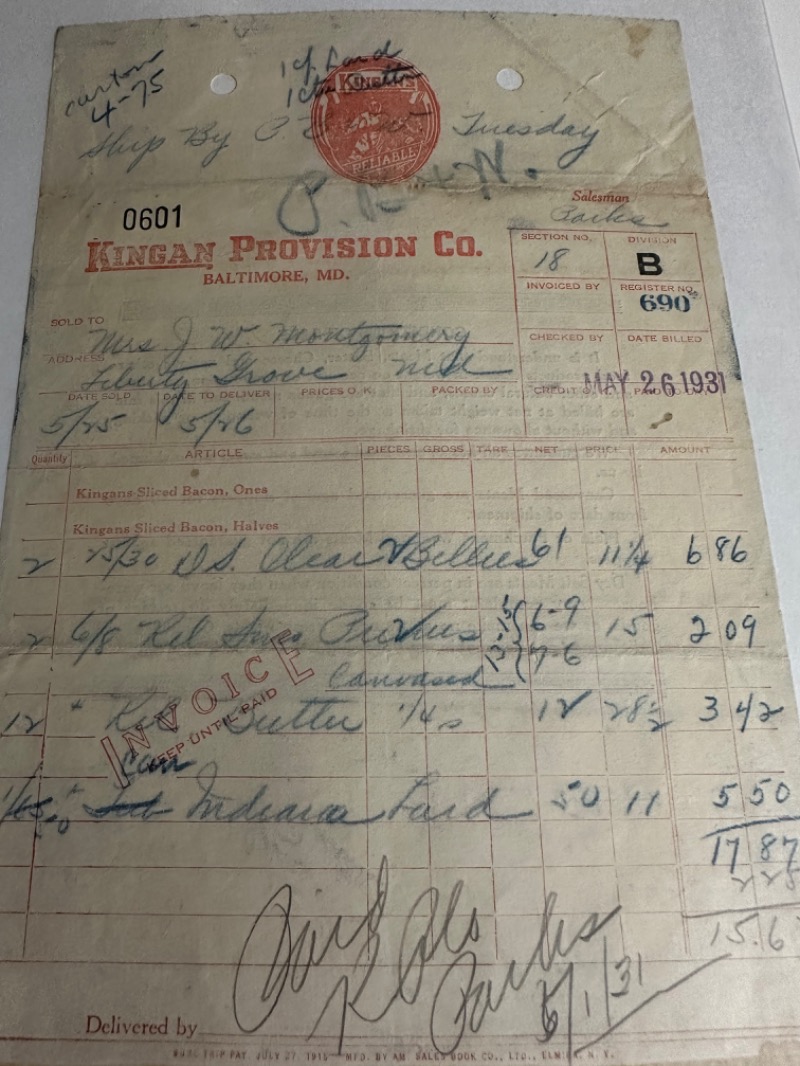 carton
4-75
1 cf Lard
1 ctn Butter
KINGAN'S
RELIABLE
Ship By P. Tuesday
P.
0601
Salesman
Parks
KINGAN PROVISION CO.
BALTIMORE, MD.
SECTION NO. DIVISION
18 B
INVOICED BY REGISTER NO.
690
SOLD TO Mrs J W. Montgomery
CHECKED BY DATE BILLED
ADDRESS Liberty Grove Md
MAY 26 1931
DATE SOLD DATE TO DELIVER PRICES O.K. PACKED BY CREDIT O.K.
5/25 5/26
Quantity ARTICLE PIECES GROSS TARE NET PRICE AMOUNT
Kingans Sliced Bacon, Ones
Kingans Sliced Bacon, Halves
2 25/30 D S. Clear Bellies 61 11 1/4 6 86
2 6/8 Rel Smo 6-9 15 2 09
Canvased 7-6
12 Butter 1/4s 12 28 1/2 3 42
INVOICE
KEEP UNTIL PAID
Indiana Lard 50 11 5 50
17 87
2 25
15.6
Paid
Parks
6/1/31
Delivered by
JULY 27, 1915 MFD. BY AM. SALES BOOK CO., LTD., ELMIRA, N. Y.